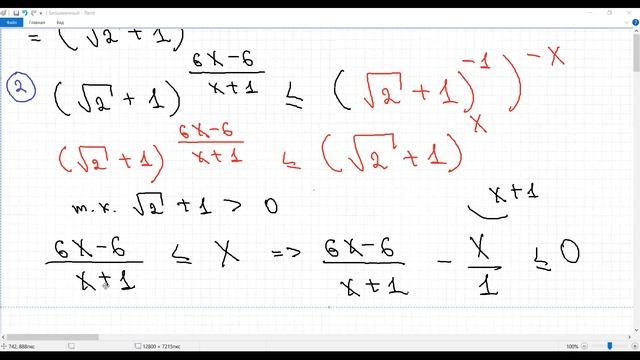 Безымянный - Paint
Файл Главная Вид
= (√2 + 1)
2 (√2 + 1)^((6x-6)/(x+1)) ≤ ((√2 + 1)^(-1))^(-x)
(√2 + 1)^((6x-6)/(x+1)) ≤ (√2 + 1)^x
т.к. √2 + 1 > 0
x+1
(6x-6)/(x+1) ≤ x => (6x-6)/(x+1) - x/1 ≤ 0
742, 888пкс 12800 × 7215пкс 100%